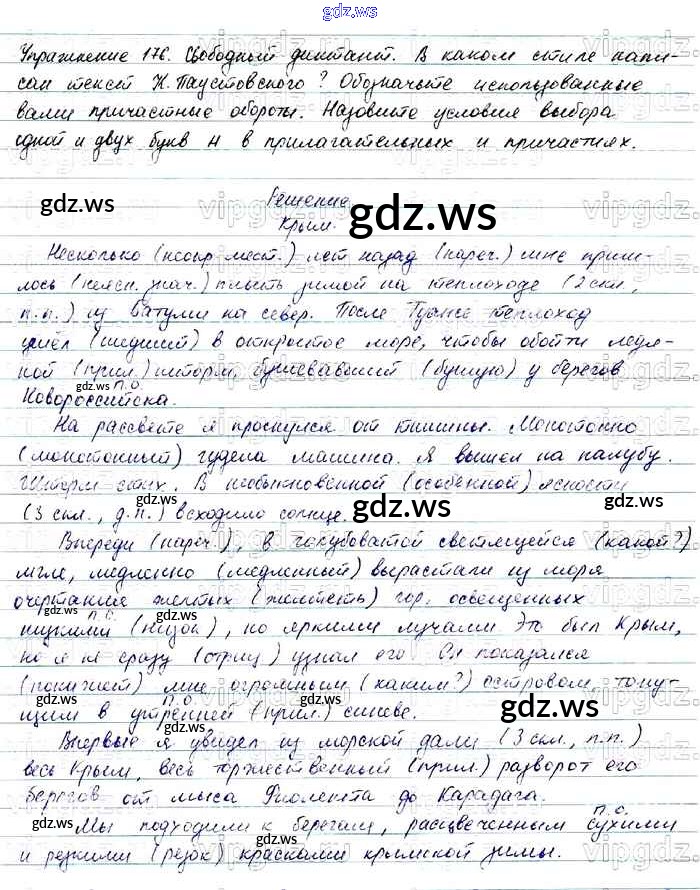 gdz.ws
Упражнение 176. Свободный диктант. В каком стиле напи-
сан текст К. Паустовского? Обозначьте использованные
вами причастные обороты. Назовите условия выбора
одной и двух букв н в прилагательных и причастиях.
Решение
Крым.
Несколько (неопр. мест.) лет назад (нареч.) мне приш-
лось (неясн. знач.) плыть зимой на теплоходе (2 скл.,
п.п.) из Батуми на север. После Туапсе теплоход
ушёл (шедший) в открытое море, чтобы обойти ледя-
ной (прил.) шторм, бушевавший (бушую) у берегов
п.о.
Новороссийска.
На рассвете я проснулся от тишины. Монотонно
(монотонный) гудела машина. Я вышел на палубу.
Шторм стих. В необыкновенной (особенной) ясности
(3 скл., д.п.) всходило солнце.
Впереди (нареч.), в голубоватой светящейся (какой?)
мгле, медленно (медленный) вырастали из моря
очертания желтых (желтеть) гор, освещенных
п.о.
низкими (низок), но яркими лучами. Это был Крым,
но я не сразу (отриц) узнал его. Он показался
(покажет) мне огромным (каким?) островом, тону-
п.о.
щим в утренней (прил.) синеве.
Впервые я увидел из морской дали (3 скл., п.п.)
весь Крым, весь торжественный (прил.) разворот его
берегов от мыса Фиолента до Карадага.
п.о.
Мы подходили к берегам, расцвеченным сухими
и резкими (резок) красками крымской зимы.